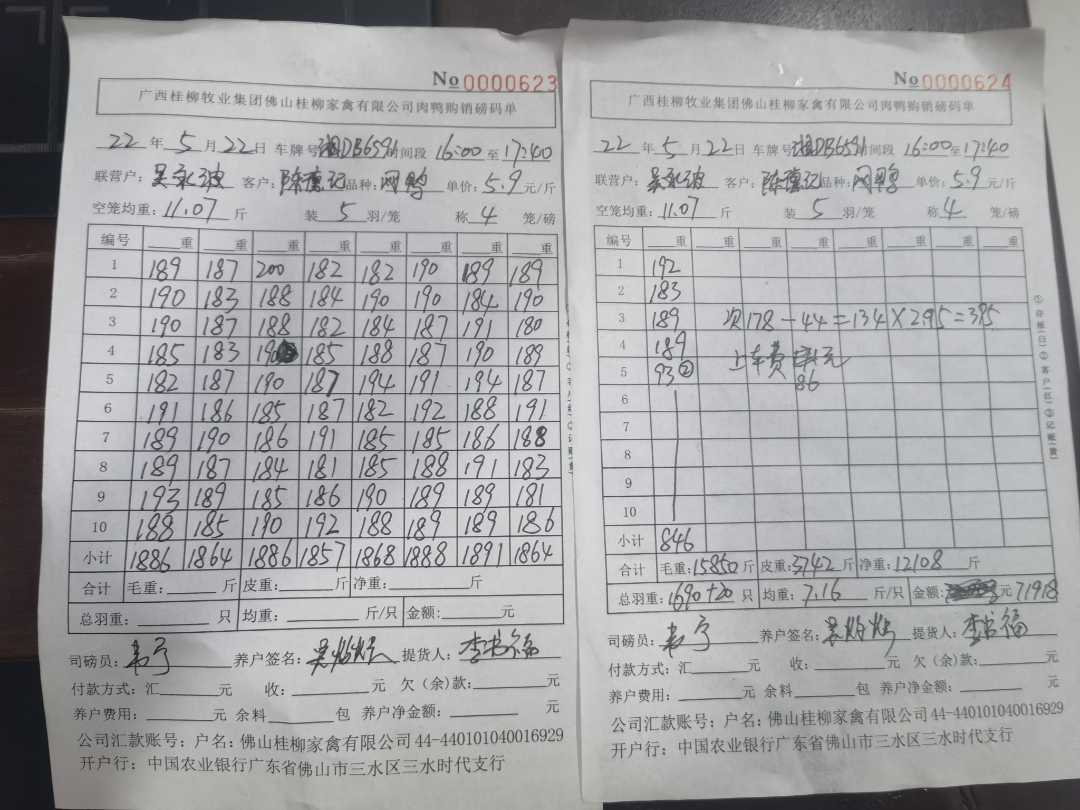 No 0000623
广西桂柳牧业集团佛山桂柳家禽有限公司肉鸭购销磅码单
22年5月22日 车牌号湘DB6591时间段16:00至17:40
联营户:吴永波 客户:陈莲记品种:网鸭 单价:5.9元/斤
空笼均重:11.07斤 装5羽/笼 称4笼/磅
编号 重 重 重 重 重 重 重 重
1 189 187 200 182 182 190 189 189
2 190 183 188 184 190 190 184 190
3 190 187 188 182 184 187 191 180
4 185 183 190 185 188 187 190 189
5 182 187 190 187 194 191 194 187
6 191 186 185 187 182 192 188 191
7 189 190 186 191 185 185 186 188
8 189 187 184 181 185 188 191 183
9 193 189 185 186 190 189 189 181
10 188 185 190 192 188 189 189 186
小计 1886 1864 1886 1857 1868 1888 1891 1864
合计 毛重: 斤 皮重: 斤 净重: 斤
总羽重: 只 均重: 斤/只 金额: 元
司磅员:韦宁 养户签名: 提货人:
付款方式:汇 元 收: 元 欠(余)款: 元
养户费用: 元 余料 包 养户净金额: 元
公司汇款账号:户名:佛山桂柳家禽有限公司44-440101040016929
开户行:中国农业银行广东省佛山市三水区三水时代支行
No 0000624
广西桂柳牧业集团佛山桂柳家禽有限公司肉鸭购销磅码单
22年5月22日 车牌号湘DB6591时间段16:00至17:40
联营户:吴永波 客户:陈莲记品种:网鸭 单价:5.9元/斤
空笼均重:11.07斤 装5羽/笼 称4笼/磅
编号 重 重 重 重 重 重 重 重
1 192
2 183
3 189 次178-44=134×2.95=395
4 189 上车费 元
5 93② 86
6
7
8
9
10
小计 846
合计 毛重:15850斤 皮重:3742斤 净重:12108斤
总羽重:1690+20只 均重:7.16斤/只 金额: 元71918
司磅员:韦宁 养户签名: 提货人:
付款方式:汇 元 收: 元 欠(余)款: 元
养户费用: 元 余料 包 养户净金额: 元
公司汇款账号:户名:佛山桂柳家禽有限公司44-440101040016929
开户行:中国农业银行广东省佛山市三水区三水时代支行
①存根(白)②客户(红)③记账(黄)